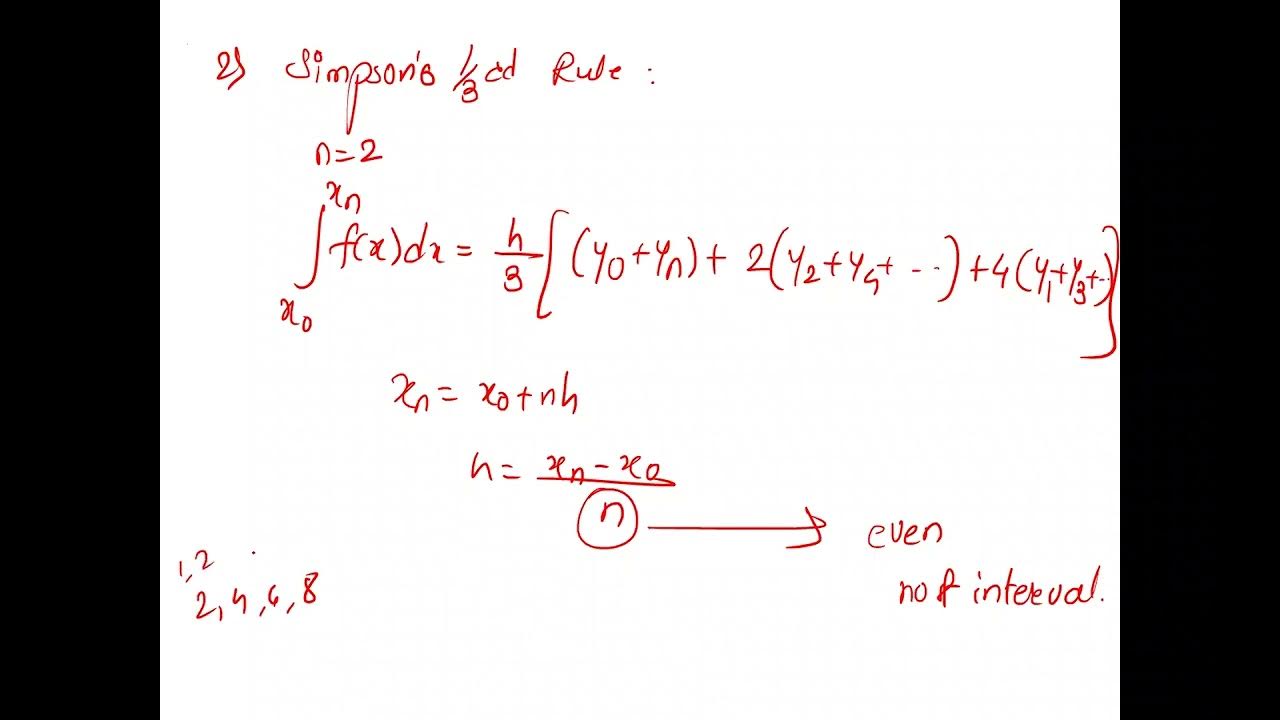 2) Simpson's 1/3rd Rule :
n=2
∫_{x₀}^{xₙ} f(x)dx = h/3 [(y₀+yₙ)+ 2(y₂+y₄+ ...)+4(y₁+y₃+..)]
xₙ= x₀+nh
h= (xₙ-x₀)/n → even
no of interval.
1,2
2,4,6,8